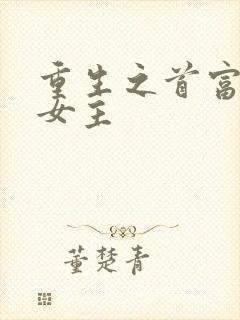 重生之首富
女主
董楚青